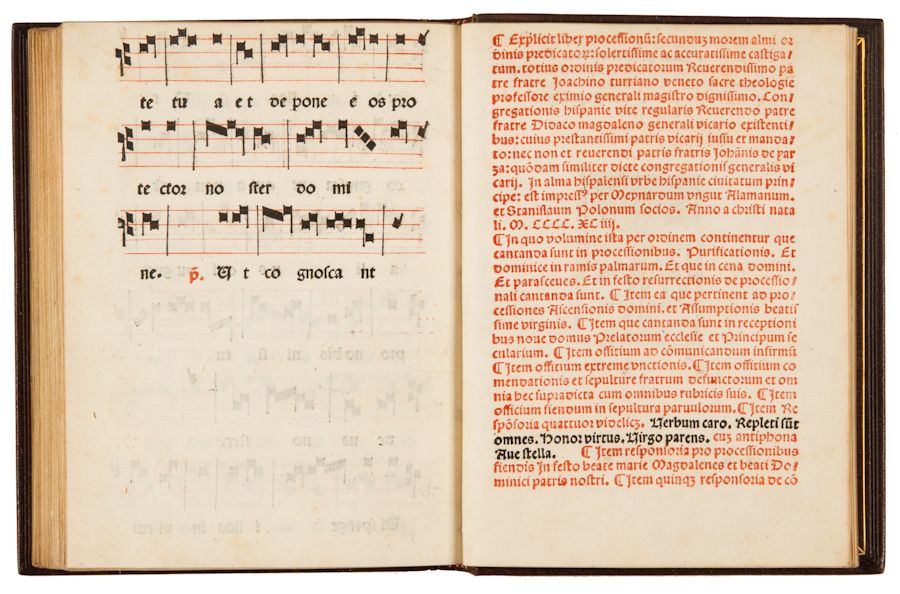 te tu a et de pone e os pro
te ctor no ster do mi
ne. p̃. U t co gnosca nt
¶ Explicit liber processionũ: secunduȝ morem almi or
dinis predicatorȝ: solertissime ac accuratissime castiga/
tum. totius ordinis predicatorum Reuerendissimo pa
tre fratre Joachino turriano veneto sacre theologie
professore eximio generali magistro dignissimo. Con/
gregationis hispanie vite regularis Reuerendo patre
fratre Didaco magdaleno generali vicario existenti/
bus: cuius prestantissimi patris vicarij iussu et manda/
to: nec non et reuerendi patris fratris Johãnis de yar
za: quõdam similiter dicte congregationis generalis vi
carij. In alma hispalensi vrbe hispanie ciuitatum prin/
cipe: est impressꝰ per Meynardum vngut Alamanum.
et Stanislaum Polonum socios. Anno a christi nata
li. M. CCCC. XC iiij.
¶ In quo volumine ista per ordinem continentur que
cantanda sunt in processionibus. Purificationis. Et
dominice in ramis palmarum. Et que in cena domini.
Et parasceues. Et in festo resurrectionis de processio/
nali cantanda sunt. ¶ Item ea que pertinent ad pro/
cessiones Ascensionis domini. et Assumptionis beatis
sime virginis. ¶ Item que cantanda sunt in receptioni
bus noue domus Prelatorum ecclesie et Principum se
cularium. ¶ Item offitium ad cõmunicandum infirmũ
¶ Item offitium extreme vnctionis. ¶ Item offitium co
mendationis et sepulture fratrum defunctorum et om
nia hec supradicta cum omnibus rubricis suis. ¶ Item
officium fiendum in sepultura paruulorum. ¶ Item Re
spõsoria quattuor videlicȝ. Verbum caro. Repleti sũt
omnes. Honor virtus. Virgo parens. cuȝ antiphona
Aue stella. ¶ Item responsoria pro processionibus
fiendis In festo beate marie Magdalenes et beati Do/
minici patris nostri. ¶ Item quinqȝ responsoria de cõ